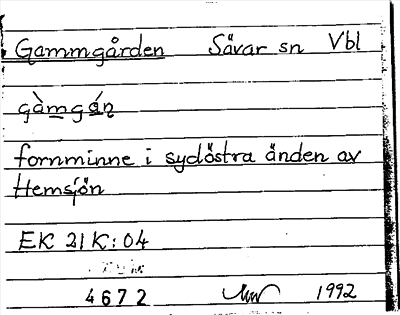 Gammgården Sävar sn Vbl
gàmgán
fornminne i sydöstra änden av
Hemsjön
EK 21K:04
4672 1992